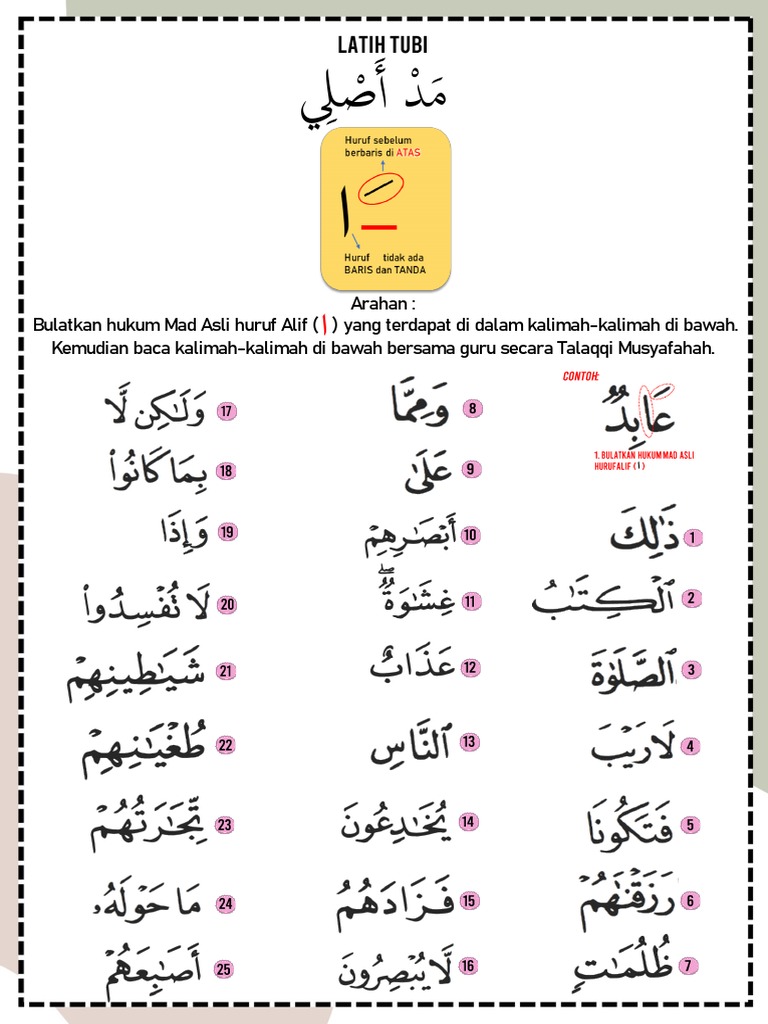 LATIH TUBI
مَدْ أَصْلِي
Huruf sebelum
berbaris di ATAS
ـَا
Huruf tidak ada
BARIS dan TANDA
Arahan :
Bulatkan hukum Mad Asli huruf Alif ( ا ) yang terdapat di dalam kalimah-kalimah di bawah.
Kemudian baca kalimah-kalimah di bawah bersama guru secara Talaqqi Musyafahah.
CONTOH:
عَابِدٌ
1. BULATKAN HUKUM MAD ASLI
HURUF ALIF ( ا )
1 ذَٰلِكَ
2 ٱلْكِتَـٰبُ
3 ٱلصَّلَوٰةَ
4 لَا رَيْبَ
5 فَتَكُونَا
6 رَزَقْنَـٰهُمْ
7 ظُلُمَـٰتٍ
8 وَمِمَّا
9 عَلَىٰ
10 أَبْصَـٰرِهِمْ
11 غِشَـٰوَةٌ ۖ
12 عَذَابٌ
13 ٱلنَّاسِ
14 يُخَـٰدِعُونَ
15 فَزَادَهُمُ
16 لَّا يُبْصِرُونَ
17 وَلَـٰكِن لَّا
18 بِمَا كَانُوا۟
19 وَإِذَا
20 لَا تُفْسِدُوا۟
21 شَيَـٰطِينِهِمْ
22 طُغْيَـٰنِهِمْ
23 تِّجَـٰرَتُهُمْ
24 مَا حَوْلَهُۥ
25 أَصَـٰبِعَهُمْ